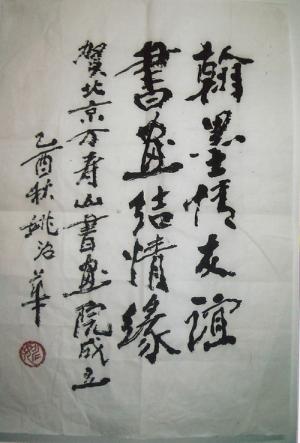 翰墨情友谊
書画结情缘
贺北京万寿山書画院成立
乙酉秋姚治华